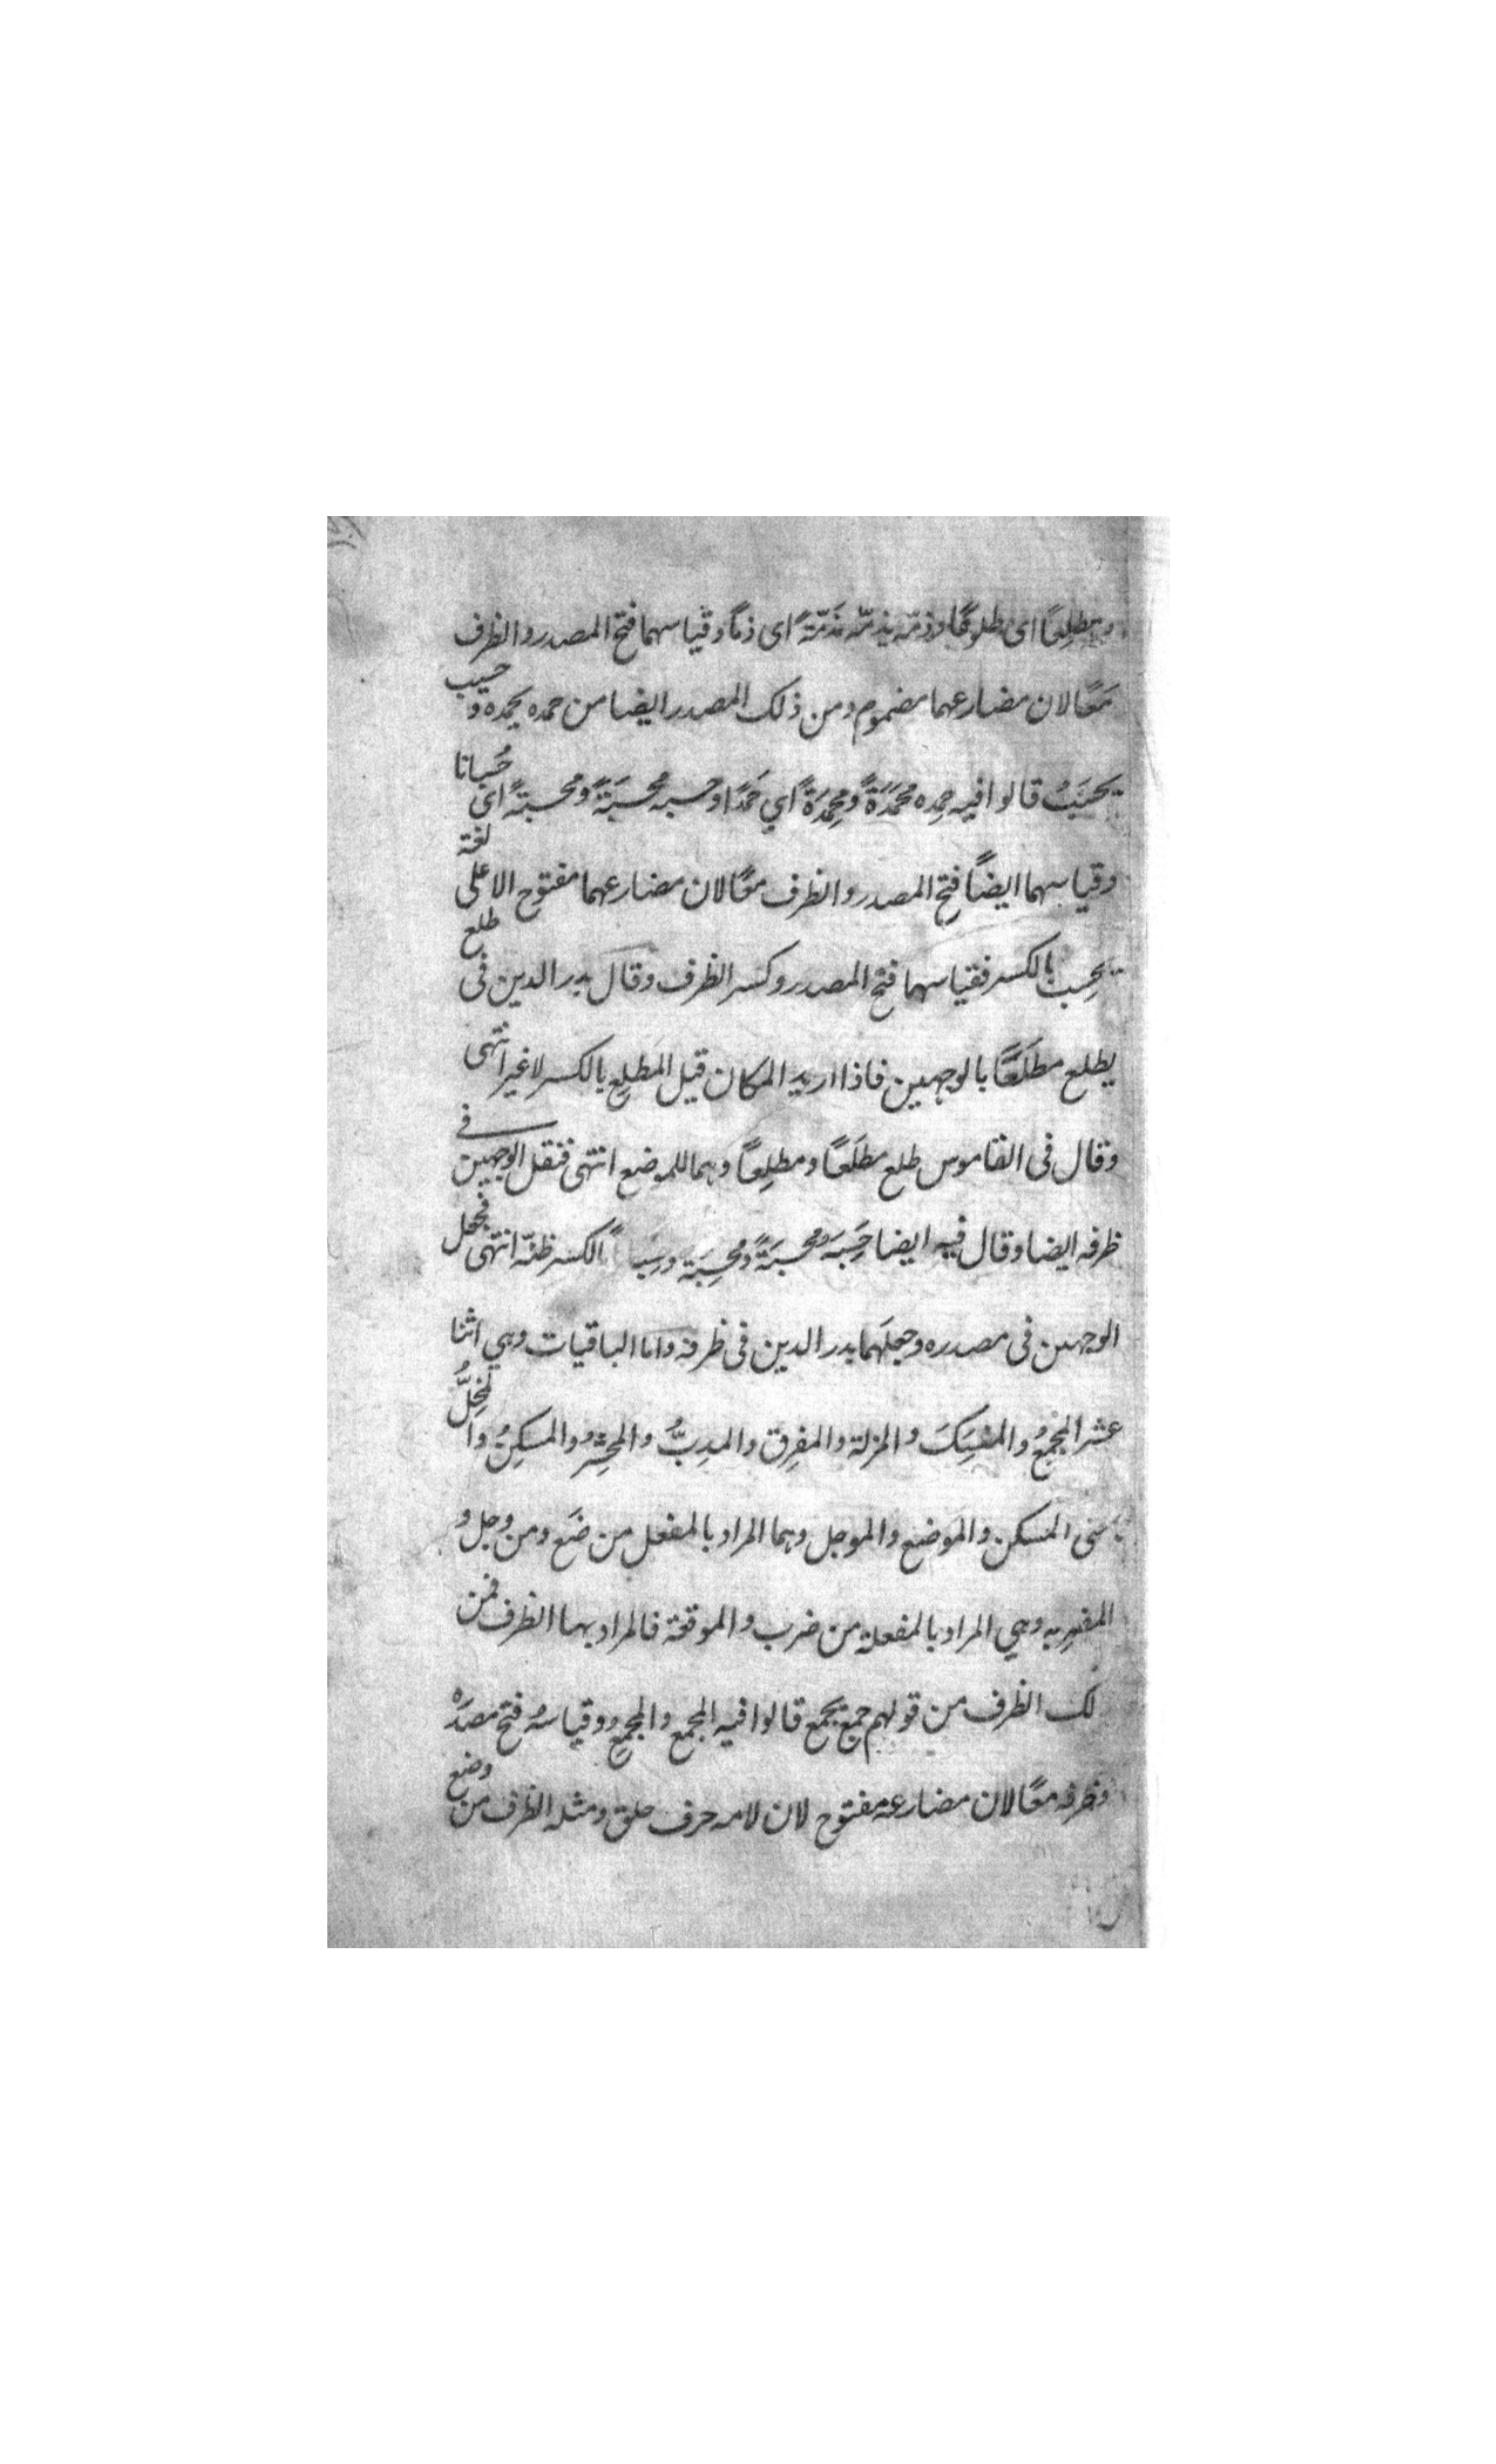 ومطلِعًا اى طلوعًا وذمّه يذمّه مَذَمَّةً اى ذمًا وقياسهما فتح المصدر والظرف
مَعًا لان مضارعهما مضموم ومن ذلك المصدر ايضا من حمده يحمده وحسب
يحسَبُ قالوا فيه حمِده محمَدَةً ومحمِدَةً اي حَمْدًا وحسبه محسَبَةً ومحسِبةً اى حُسبانا
وقياسهما ايضًا فتح المصدر والظرف معًا لان مضارعهما مفتوح الا على لغة
يحسِب بالكسر فقياسهما فتح المصدر وكسر الظرف وقال بدر الدين فى طلع
يطلع مطلَعًا بالوجهين فاذا اريد المكان قيل المَطلِع بالكسر لا غير انتهى
وقال فى القاموس طلع مطلَعًا ومطلِعًا وهما للموضع انتهى فنقل الوجهين في
ظرفه ايضا وقال فيه ايضا حَسِبَه محسَبَةً ومحسِبَة بالكسر ظنّه انتهى فجعل
الوجهين فى مصدره وجعلهما بدر الدين فى ظرفه واما الباقيات وهي اثنا
عشر المجمِعُ والمنسِكَ والمزلة والمفرِق والمدِبُّ والمحشِرُ والمسكِنُ والمَحِلُّ
المسكن والموضع والموجل وهما المراد بالمفعل من ضَع ومن وجل و
المضرِبه وهي المراد بالمفعلة من ضرب والموقعة فالمراد بها الظرف فمن
لك الظرف من قولهم جمع يجمع قالوا فيه المجمَع والمجمِع وقياسُه فتح مصدَرِه
وظرفه معًا لان مضارعه مفتوح لان لامه حرف حلق ومثله الظرف من وضع